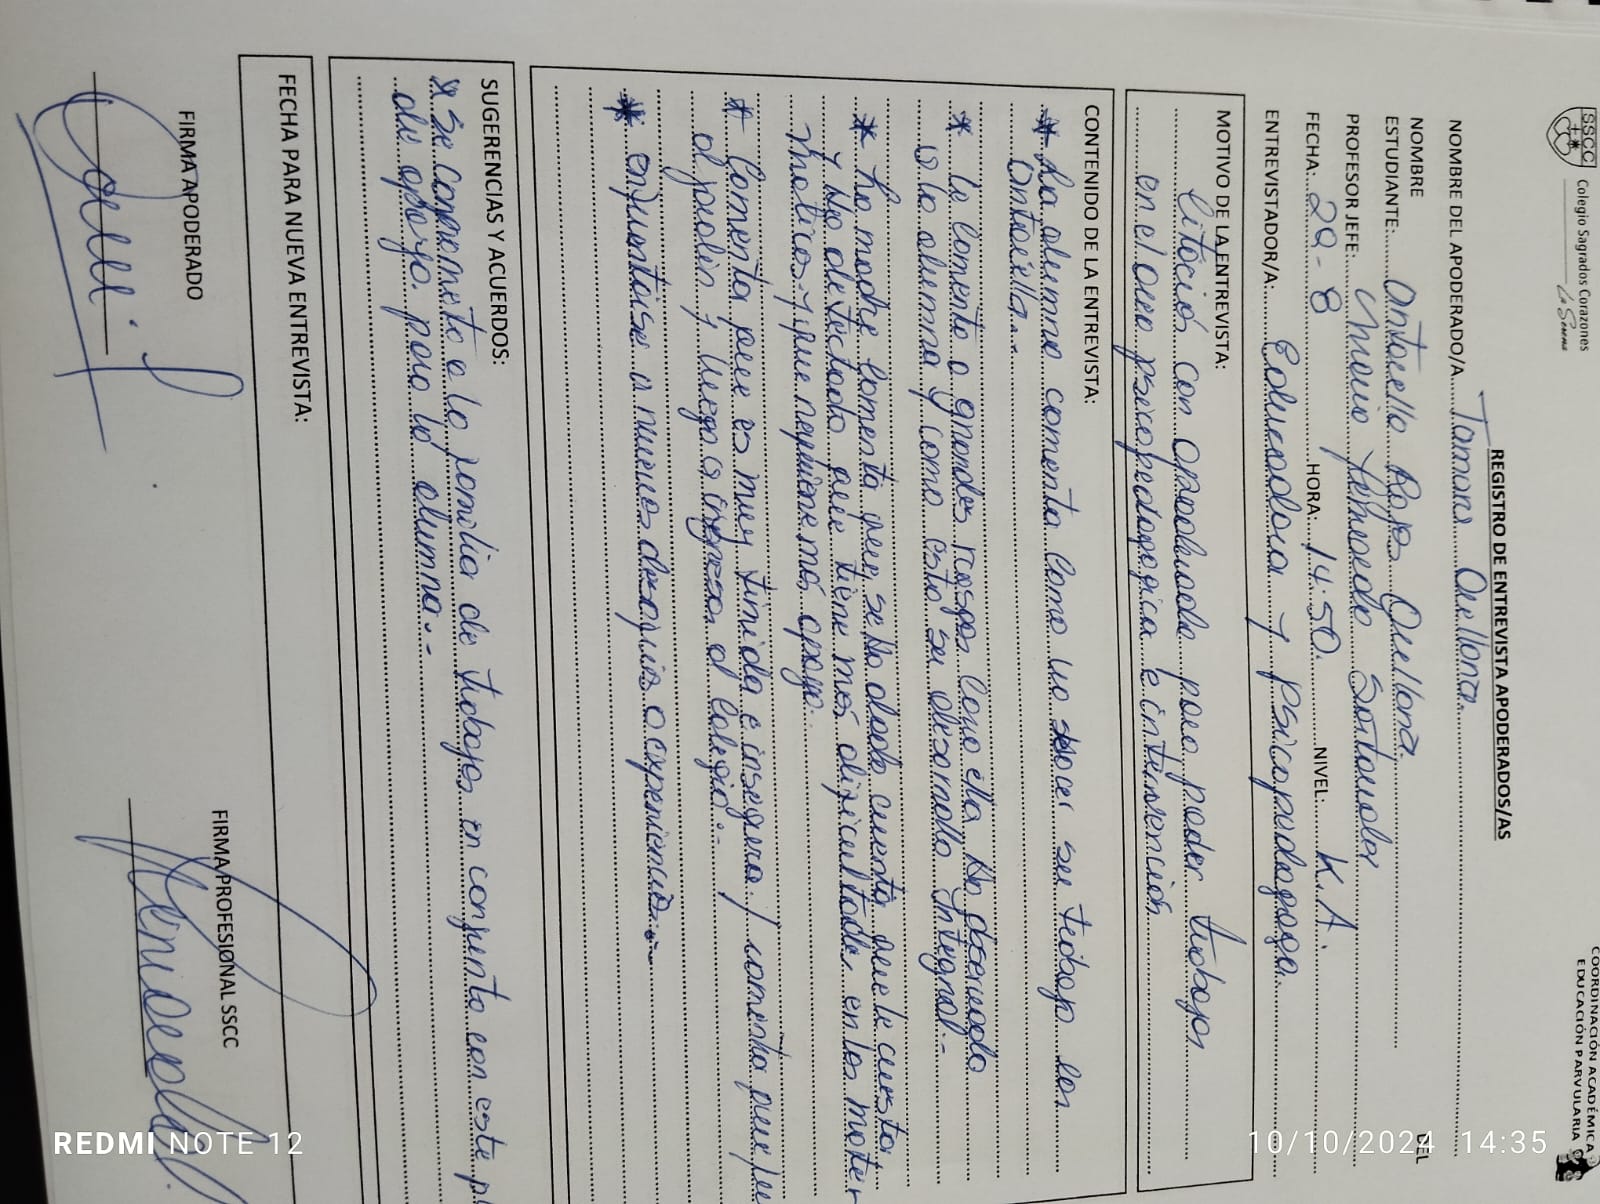 SSCC
Colegio Sagrados Corazones
La Serena
COORDINACIÓN ACADÉMICA
EDUCACIÓN PARVULARIA
REGISTRO DE ENTREVISTA APODERADOS/AS
NOMBRE DEL APODERADO/A Tamara Orellana.
NOMBRE DEL
ESTUDIANTE: Antonella Rojas Orellana.
PROFESOR JEFE: Santander
FECHA: 29-8 HORA: 14:50. NIVEL: K.A.
ENTREVISTADOR/A: Educadora y psicopedagoga.
MOTIVO DE LA ENTREVISTA:
Citación con apoderada para poder trabajar
en el área psicopedagogica e intervención
CONTENIDO DE LA ENTREVISTA:
* La alumna comenta como va hacer su trabajo con
Antonella.-
* le comenta a grandes rasgos como ella ha observado
a la alumna y como esta su desarrollo integral.-
* La madre comenta que se ha dado cuenta que le cuesta
y ha detectado que tiene más dificultades en las mate
maticas y que requiere más apoyo.
* Comenta que es muy timida e insegura / comenta que fue
al jardin y luego a ingresar al colegio.-
* enfrentarse a nuevos desafios o experiencias.-
SUGERENCIAS Y ACUERDOS:
* Se compromete a la familia de trabajar en conjunto con este
de apoyo para la alumna.-
FECHA PARA NUEVA ENTREVISTA:
FIRMA APODERADO
FIRMA PROFESIONAL SSCC
REDMI NOTE 12
10/10/2024 14:35